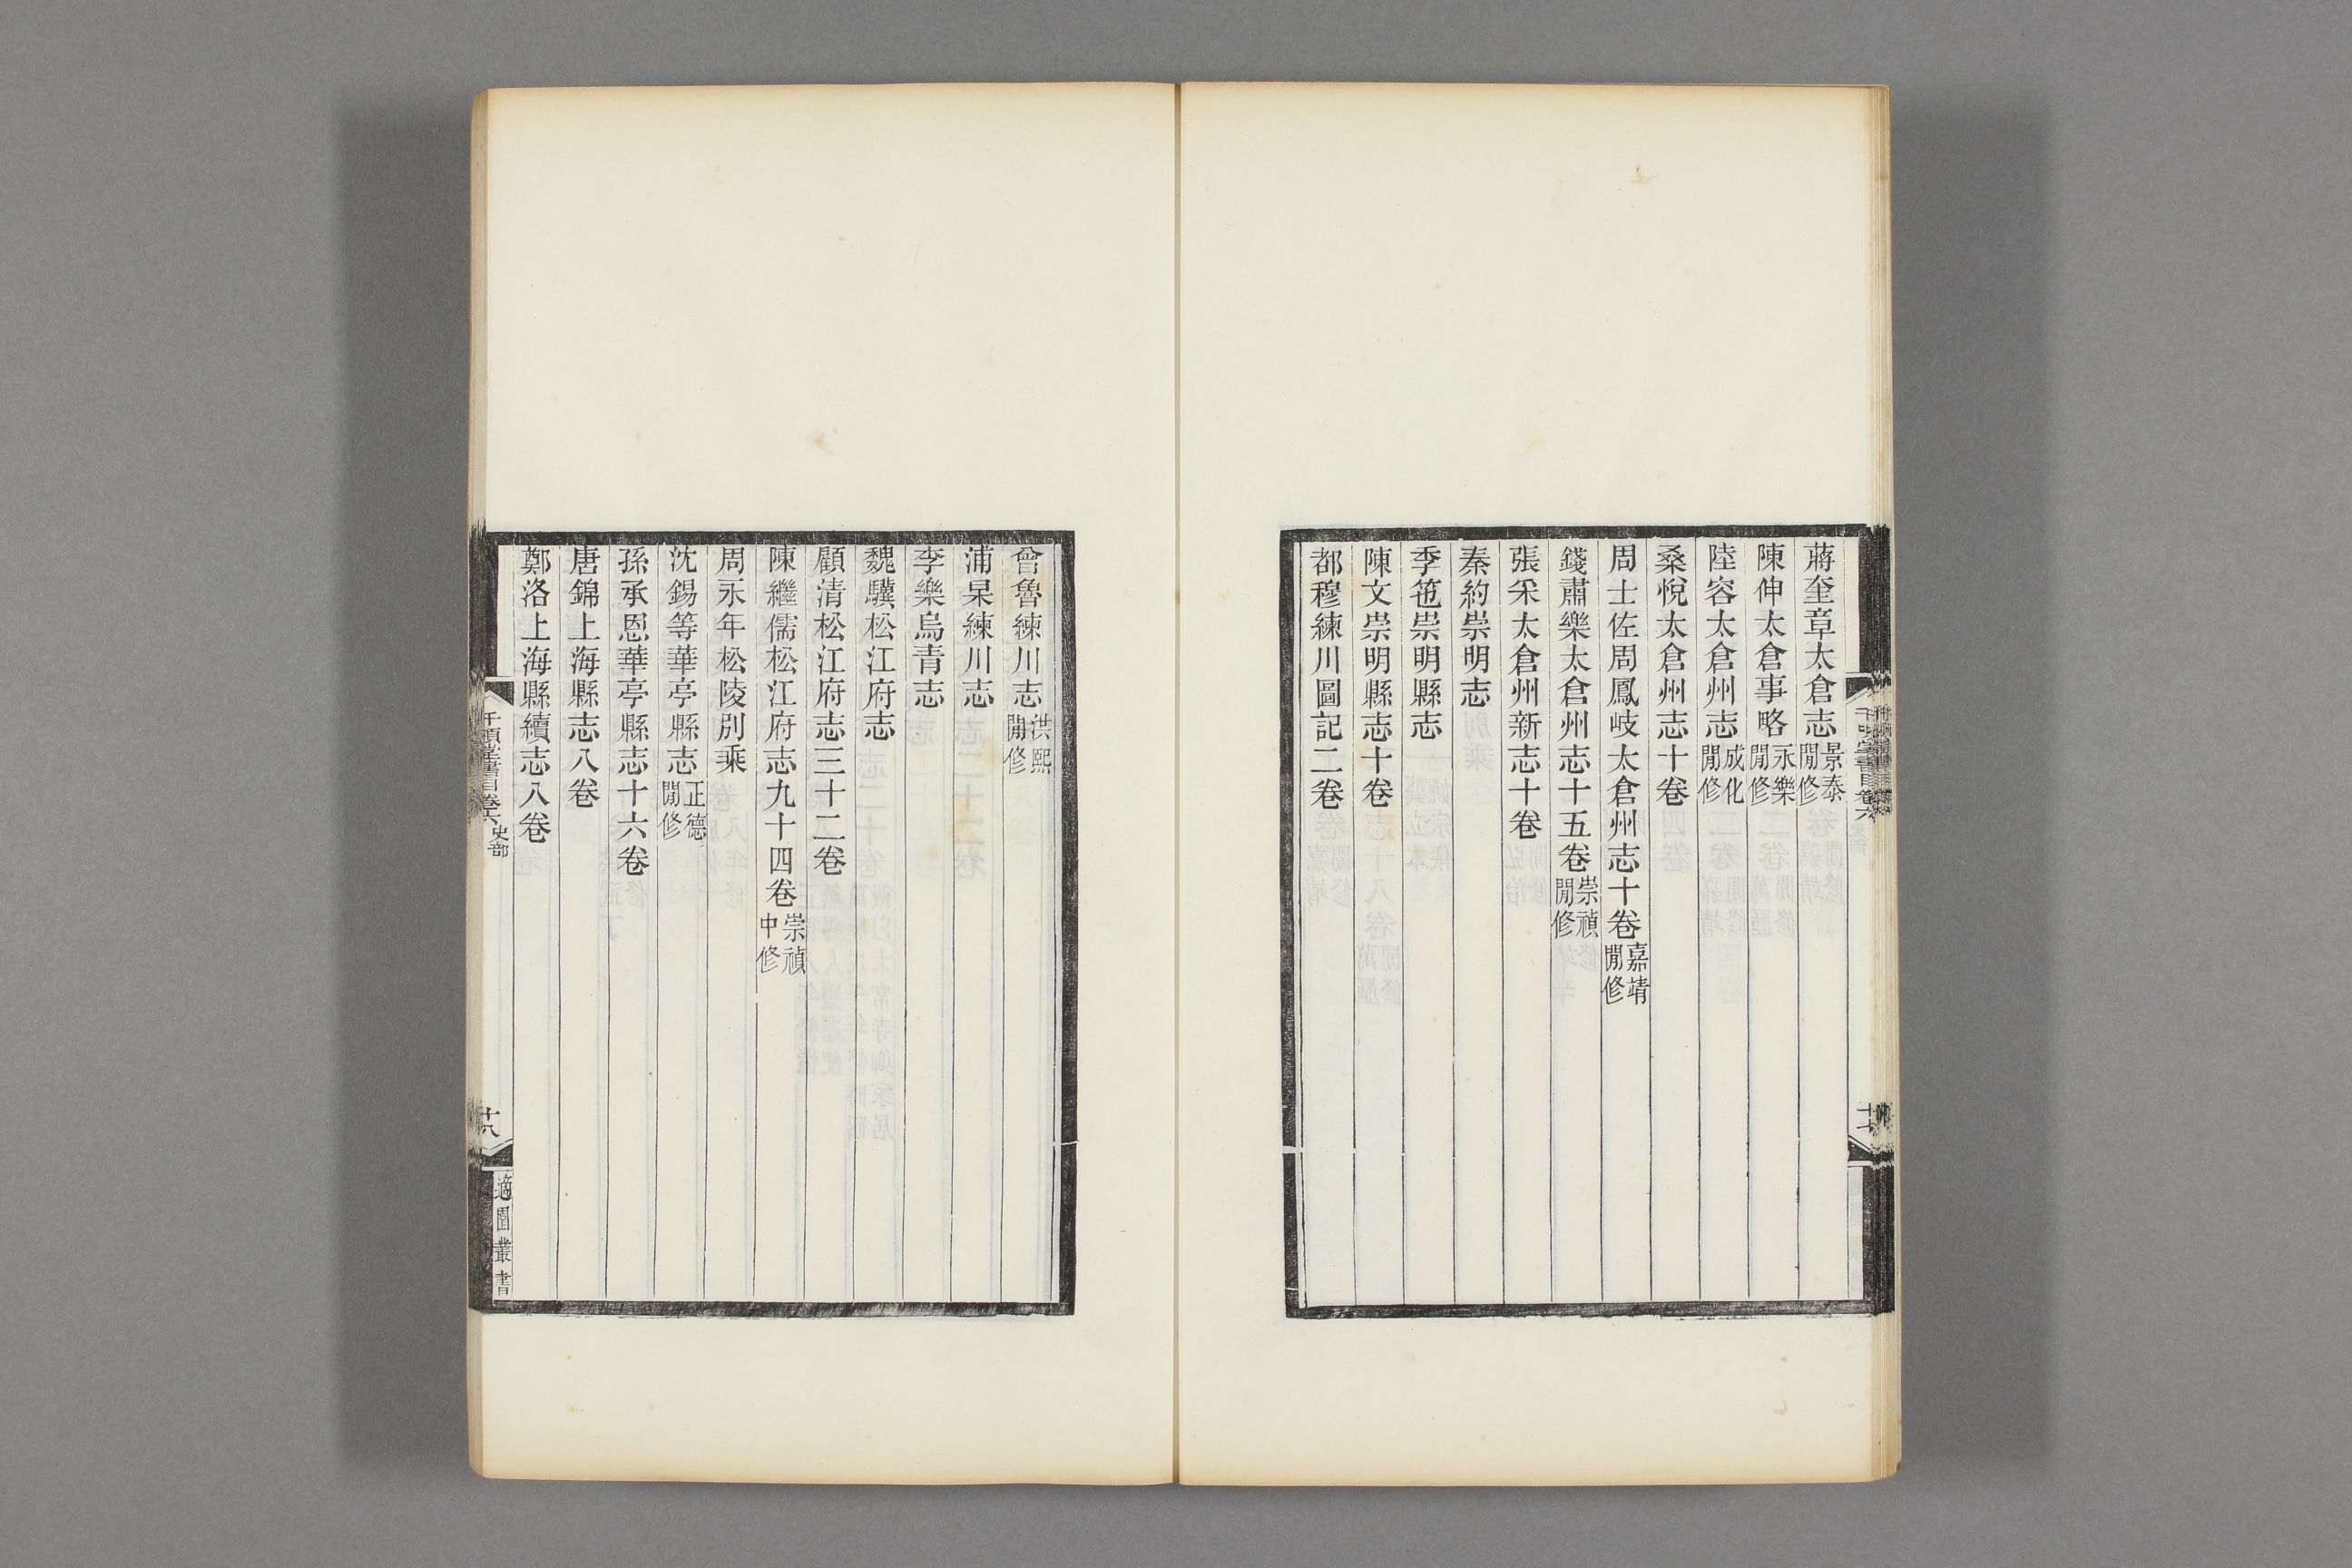 蔣奎章太倉志景泰閒修
陳伸太倉事略永樂閒修
陸容太倉州志成化閒修
桑悅太倉州志十卷
周士佐周鳳岐太倉州志十卷嘉靖閒修
錢肅樂太倉州志十五卷崇禎閒修
張采太倉州新志十卷
秦約崇明志
季䇕崇明縣志
陳文崇明縣志十卷
都穆練川圖記二卷
曾魯練川志洪熙閒修
浦杲練川志
李樂烏青志
魏驥松江府志
顧清松江府志三十二卷
陳繼儒松江府志九十四卷崇禎中修
周永年松陵別乘
沈錫等華亭縣志正德閒修
孫承恩華亭縣志十六卷
唐錦上海縣志八卷
鄭洛上海縣續志八卷
千頃堂書目卷六 史部
十八
適園叢書